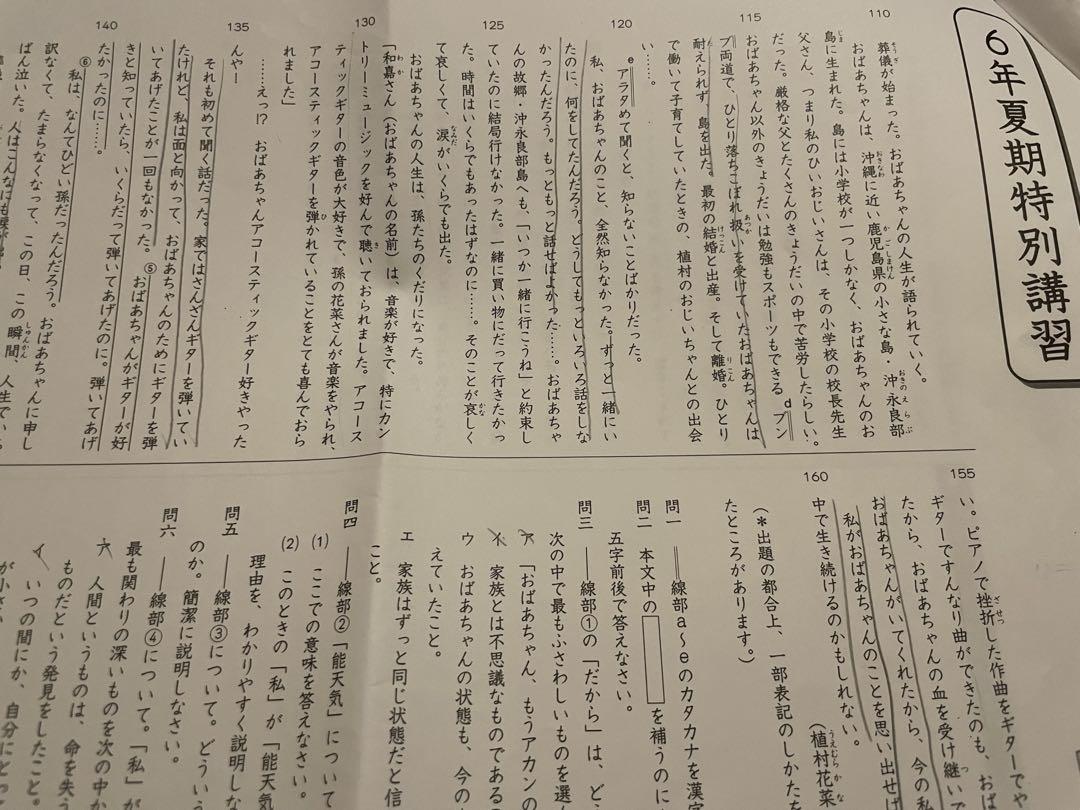 6年夏期特別講習
110
葬儀が始まった。おばあちゃんの人生が語られていく。
おばあちゃんは、沖縄に近い鹿児島県の小さな島・沖永良部
島に生まれた。島には小学校が一つしかなく、おばあちゃんのお
父さん、つまり私のひいおじいさんは、その小学校の校長先生
だった。厳格な父とたくさんのきょうだいの中で苦労したらしい。
115
おばあちゃん以外のきょうだいは勉強もスポーツもできるdブン
ブ両道で、ひとり落ちこぼれ扱いを受けていたおばあちゃんは
耐えられず、島を出た。最初の結婚と出産。そして離婚。ひとり
で働いて子育てしていたときの、植村のおじいちゃんとの出会
い……。
120
eアラタめて聞くと、知らないことばかりだった。
私、おばあちゃんのこと、全然知らなかった。ずっと一緒にい
たのに、何をしてたんだろう。どうしてもっといろいろ話をしな
かったんだろう。もっともっと話せばよかった……。おばあちゃ
んの故郷・沖永良部島へも、「いつか一緒に行こうね」と約束し
125
ていたのに結局行けなかった。一緒に買い物にだって行きたかっ
た。時間はいくらでもあったはずなのに……。そのことが哀しく
て哀しくて、涙がいくらでも出た。
おばあちゃんの人生は、孫たちのくだりになった。
「和嘉さん（おばあちゃんの名前）は、音楽が好きで、特にカン
130
トリーミュージックを好んで聴いておられました。アコース
ティックギターの音色が大好きで、孫の花菜さんが音楽をやられ、
アコースティックギターを弾かれていることをとても喜んでおら
れました」
……えっ!? おばあちゃんアコースティックギター好きやった
135
んやー
それも初めて聞く話だった。家ではさんざんギターを弾いてい
たけれど、私は面と向かって、おばあちゃんのためにギターを弾
いてあげたことが一回もなかった。⑤おばあちゃんがギターが好
きと知っていたら、いくらだって弾いてあげたのに。弾いてあげ
140
たかったのに……。
⑥私は、なんてひどい孫だったんだろう。おばあちゃんに申し
訳なくて、たまらなくなって、この日、この瞬間、人生でいち
ばん泣いた。人はこんなにも涙が
155
い。ピアノで挫折した作曲をギターでや
ギターですんなり曲ができたのも、おば
たから、おばあちゃんの血を受け継い
おばあちゃんがいてくれたから、今の私
おばあちゃんのことを思い出せば
160
私がおばあちゃんのことを
中で生き続けるのかもしれない。
（植村花菜
（＊出題の都合上、一部表記のしかたを
たところがあります。）
問一 ══線部a～eのカタカナを漢字
問二 本文中の を補うのに
五字前後で答えなさい。
問三 ──線部①の「だから」は、ど
次の中で最もふさわしいものを選
ア 「おばあちゃん、もうアカンの
イ 家族とは不思議なものである
ウ おばあちゃんの状態も、今の
えていたこと。
エ 家族はずっと同じ状態だと信
こと。
問四 ──線部②「能天気」について
(1) ここでの意味を答えなさい。
(2) このときの「私」が「能天気
理由を、わかりやすく説明しな
問五 ──線部③について。どういう
のか。簡潔に説明しなさい。
問六 ──線部④について。「私」が
最も関わりの深いものを次の中か
ア 人間というものは、命を失う
ものだという発見をしたこと。
イ いつの間にか、自分にとっ